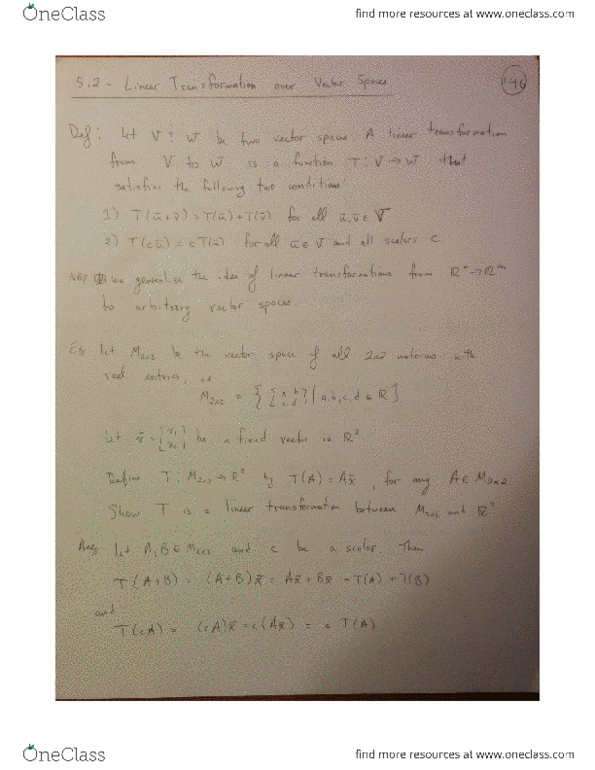 OneClass
find more resources at www.oneclass.com
5.2 - Linear Transformation over Vector Spaces
146
Def: Let V & W be two vector spaces A linear transformation
from V to W is a function T: V → W that
satisfies the following two conditions:
1) T(ū+v̄) = T(ū) + T(v̄) for all ū, v̄ ∈ V
2) T(cū) = cT(ū) for all ū ∈ V and all scalars c.
we generalize the idea of linear transformations from ℝⁿ → ℝᵐ
to arbitrary vector spaces.
Eg: Let M₂ₓ₂ be the vector space of all 2x2 matrices with
real entries, ie
M₂ₓ₂ = { [a b c d] | a,b,c,d ∈ ℝ }
Let x̄ = [x₁ x₂] be a fixed vector in ℝ²
Define T: M₂ₓ₂ → ℝ² by T(A) = Ax̄, for any A ∈ M₂ₓ₂
Show T is a linear transformation between M₂ₓ₂ and ℝ²
Ans: Let A, B ∈ M₂ₓ₂ and c be a scalar. Then
T(A+B) = (A+B)x̄ = Ax̄ + Bx̄ = T(A) + T(B)
and
T(cA) = (cA)x̄ = c(Ax̄) = c T(A)
OneClass
find more resources at www.oneclass.com